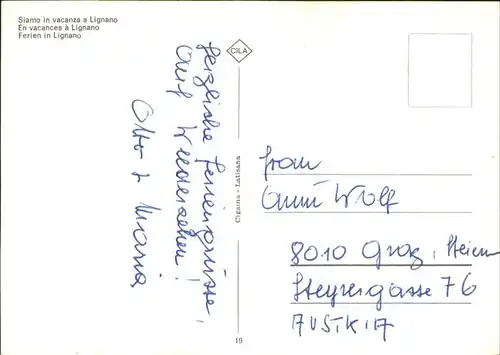 Siamo in vacanza a Lignano
En vacances à Lignano
Ferien in Lignano
CILA
Herzliche Feriengrüsse,
Auf Wiedersehen!
Otto + Maria
Olgama - Latisana
19
Frau
Anni Wolf
8010 Graz, Steier
Steyrergasse 76
AUSTRIA